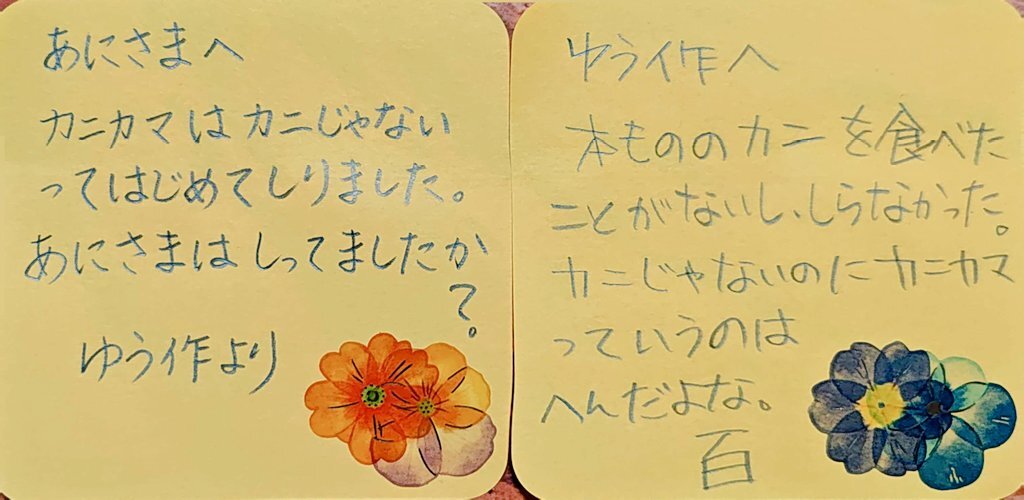 あにさまへ
カニカマはカニじゃない
ってはじめてしりました。
あにさまはしってましたか
?
ゆう作より
ゆう作へ
本もののカニを食べた
ことがないし、しらなかった。
カニじゃないのにカニカマ
っていうのは
へんだよな。
百